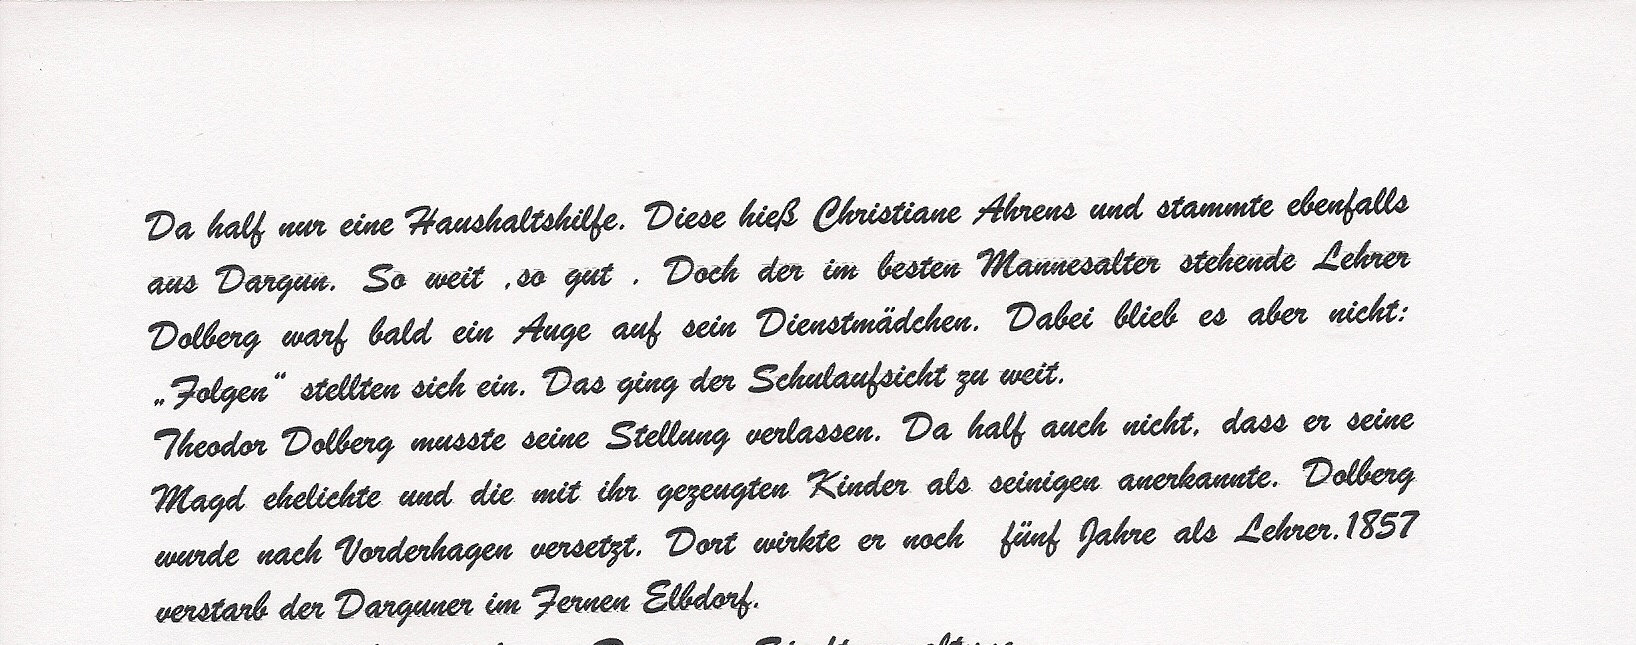 Da half nur eine Haushaltshilfe. Diese hieß Christiane Ahrens und stammte ebenfalls
aus Dargun. So weit ,so gut . Doch der im besten Mannesalter stehende Lehrer
Dolberg warf bald ein Auge auf sein Dienstmädchen. Dabei blieb es aber nicht:
„Folgen“ stellten sich ein. Das ging der Schulaufsicht zu weit.
Theodor Dolberg musste seine Stellung verlassen. Da half auch nicht, dass er seine
Magd ehelichte und die mit ihr gezeugten Kinder als seinigen anerkannte. Dolberg
wurde nach Vorderhagen versetzt. Dort wirkte er noch fünf Jahre als Lehrer.1857
verstarb der Darguner im Fernen Elbdorf.